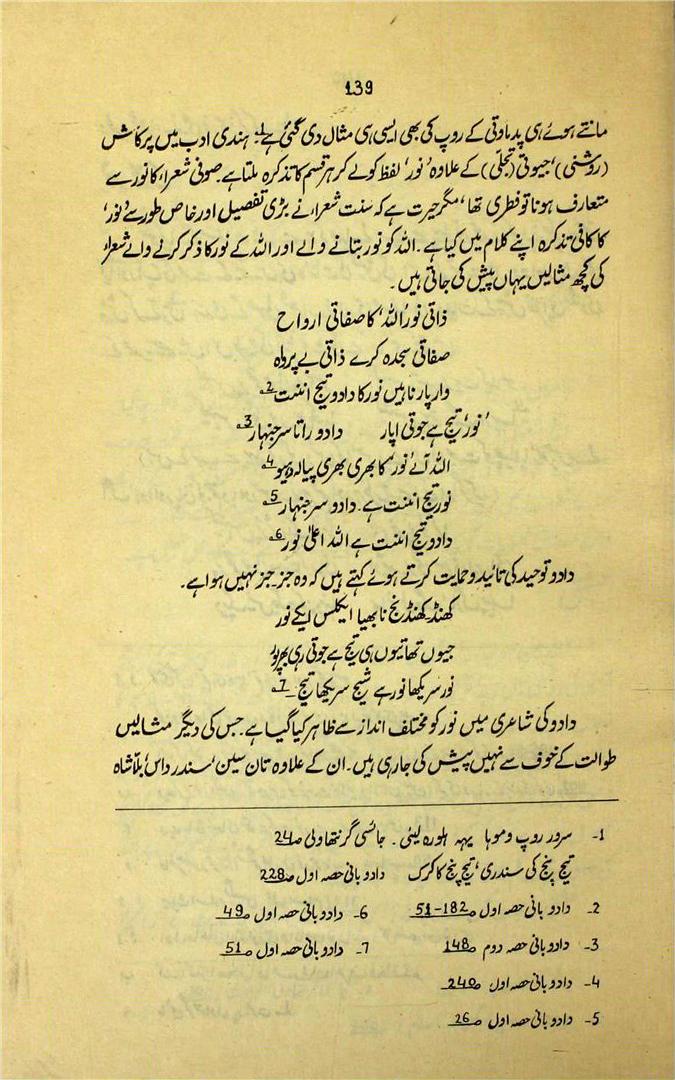 139
مانتے ہوئے ہی پدماوتی کے روپ کی بھی ایسی ہی مثال دی گئی ہے۔1 ہندی ادب میں پرکاش
(روشنی)، جیوتی (تجلی) کے علاوہ 'نور' لفظ کو لے کر ہر قسم کا تذکرہ ملتا ہے۔ صوفی شعراء کا نور سے
متعارف ہونا تو فطری تھا، مگر حیرت ہے کہ سنت شعراء نے بڑی تفصیل اور خاص طور سے 'نور'
کا کافی تذکرہ اپنے کلام میں کیا ہے۔ اللہ کو نور بتانے والے اور اللہ کے نور کا ذکر کرنے والے شعراء
کی کچھ مثالیں یہاں پیش کی جاتی ہیں۔
ذاتی نور اللہ کا صفاتی ارواح
صفاتی سجدہ کرے ذاتی بے پرواہ
وار پار ناہیں نور کا دادو تیج اننت 2
'نور' تیج ہے جوتی اپار دادو راتا سرجنہار 3
اللہ آلے 'نور' کا بھری بھری پیالہ دیہو 4
نور تیج اننت ہے۔ دادو سرجنہار 5
دادو تیج اننت ہے اللہ اعلیٰ نور 6
دادو توحید کی تائید و حمایت کرتے ہوئے کہتے ہیں کہ وہ جز جز نہیں ہوا ہے۔
کھنڈ کھنڈ نج نا بھیا ایکلس ایکے نور
جیوں تھا تیوں ہی تیج ہے جوتی رہی بھرپور
نور سریکھا نور ہے تیج سریکھا تیج 7
دادو کی شاعری میں نور کو مختلف انداز سے ظاہر کیا گیا ہے۔ جس کی دیگر مثالیں
طوالت کے خوف سے نہیں پیش کی جا رہی ہیں۔ ان کے علاوہ تان سین، سندر داس، بلا شاہ
1۔ سرور روپ وموہا یہہ ہلورہ لیئی۔ جائسی گرنتھاولی ص 24
تیج پنج کی سندری، تیج پنج کا کرک دادو بانی حصہ اول ص 228
2۔ دادو بانی حصہ اول ص 182-51 6۔ دادو بانی حصہ اول ص 49
3۔ دادو بانی حصہ دوم ص 148 7۔ دادو بانی حصہ اول ص 51
4۔ دادو بانی حصہ اول ص 240
5۔ دادو بانی حصہ اول ص 26